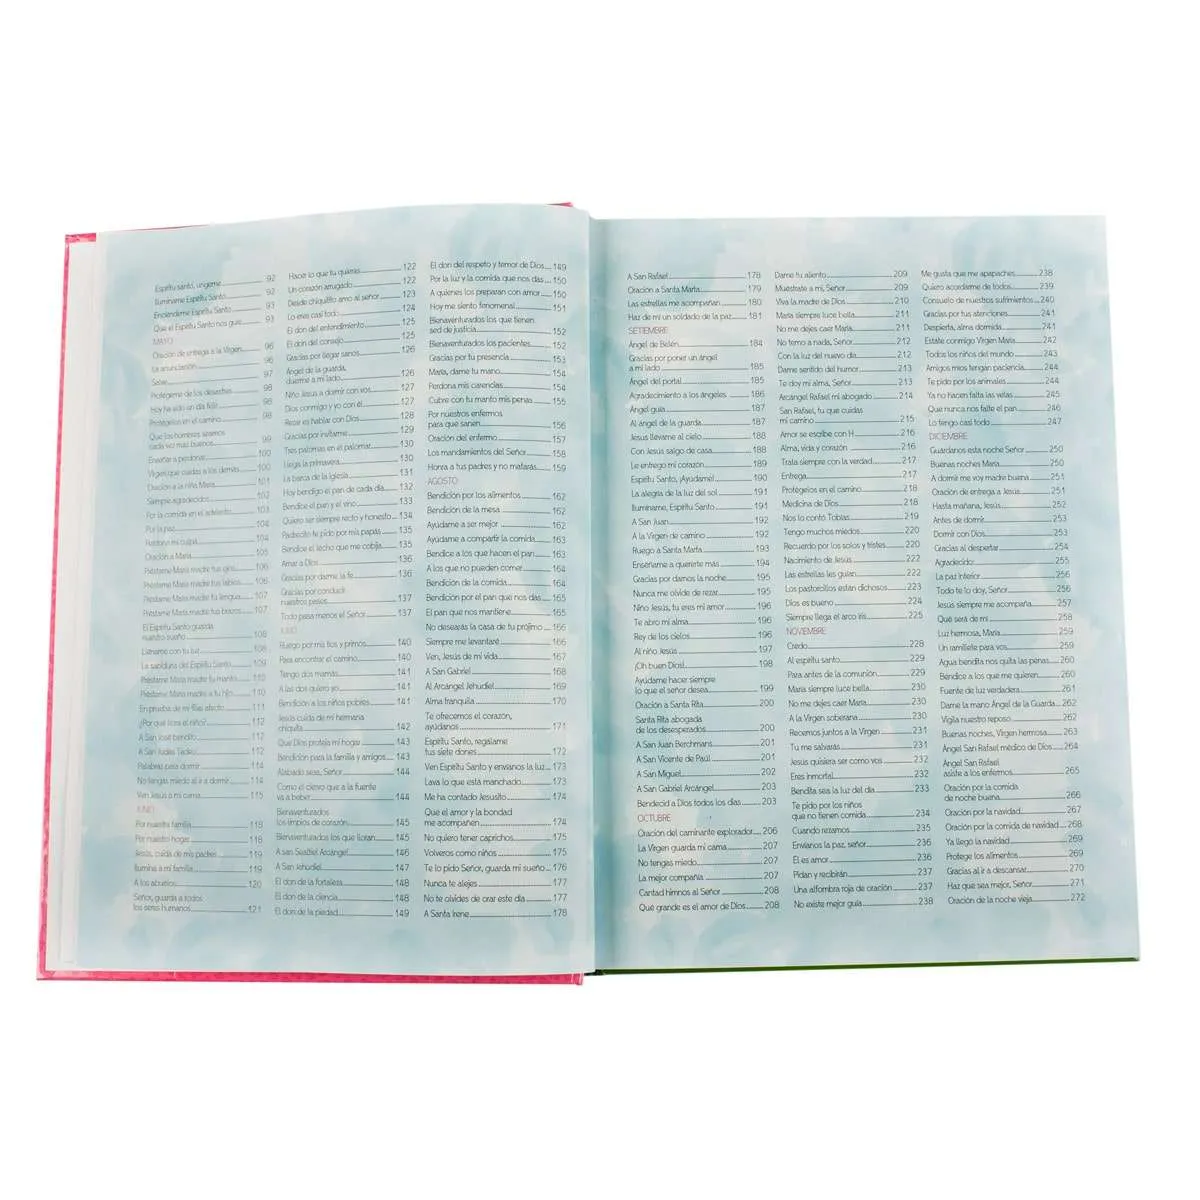 Espíritu santo, úngeme 92
Ilumíname Espíritu Santo 92
Enciéndeme Espíritu Santo 93
Que el Espíritu Santo nos guíe 93
MAYO
Oración de entrega a la Virgen 96
La anunciación 96
Salve 97
Protégeme de los desastres 98
Hoy ha sido un día feliz 98
Protégelos en el camino 98
Que los hombres seamos
cada vez más buenos 99
Enseñar a perdonar 100
Virgen que cuidas a los demás 100
Oración a la niña María 101
Siempre agradecidos 102
Por la comida en el adelanto 103
Por la paz 104
Perdona mi culpa 104
Oración a María 105
Préstame María madre tus ojos 106
Préstame María madre tus labios 106
Préstame María madre tu lengua 107
Préstame María madre tus brazos 107
El Espíritu Santo guarda
nuestro sueño 108
Lléname con tu luz 108
La sabiduría del Espíritu Santo 109
Préstame María madre tu manto 110
Préstame María madre a tu hijo 110
En prueba de mi filial afecto 111
¿Por qué llora el niño? 112
A San José bendito 112
A San Judas Tadeo 112
Palabras para dormir 114
No tengas miedo al ir a dormir 114
Ven Jesús a mi cama 115
JUNIO
Por nuestra familia 118
Por nuestro hogar 118
Jesús, cuida de mis padres 119
Ilumina a mi familia 119
A los abuelos 120
Señor, guarda a todos
los seres humanos 121
Hacer lo que tú quieras 122
Un corazón arrugado 122
Desde chiquitito amo al señor 123
Lo eres casi todo 124
El don del entendimiento 125
El don del consejo 125
Gracias por llegar sanos 126
Ángel de la guarda,
duerme a mi lado 126
Niño Jesús a dormir con vos 127
Dios conmigo y yo con él 127
Rezar es hablar con Dios 128
Gracias por invitarme 129
Tres palomas en el palomar 130
Llega la primavera 130
La barca de la iglesia 131
Hoy bendigo el pan de cada día 132
Bendice el pan y el vino 133
Quiero ser siempre recto y honesto 134
Padrecito te pido por mis papás 135
Bendice el lecho que me cobija 135
Amar a Dios 136
Gracias por darme la fe 136
Gracias por conducir
nuestros pasos 137
Todo pasa menos el Señor 137
JULIO
Ruego por mis tíos y primos 140
Para encontrar el camino 140
Tengo dos mamás 141
A las dos quiero yo 141
Bendición a los niños pobres 141
Jesús cuida de mi hermana
chiquita 142
Que Dios proteja mi hogar 143
Bendición para la familia y amigos 143
Alabado seas, Señor 144
Como el ciervo que a la fuente
va a beber 144
Bienaventurados
los limpios de corazón 145
Bienaventurados los que lloran 145
A san Sealtiel Arcángel 146
A San Jehudiel 147
El don de la fortaleza 148
El don de la ciencia 148
El don de la piedad 149
El don del respeto y temor de Dios 149
Por la luz y la comida que nos das 150
A quienes los preparan con amor 150
Hoy me siento fenomenal 151
Bienaventurados los que tienen
sed de justicia 152
Bienaventurados los pacientes 152
Gracias por tu presencia 153
María, dame tu mano 154
Perdona mis carencias 154
Cubre con tu manto mis penas 155
Por nuestros enfermos
para que sanen 156
Oración del enfermo 157
Los mandamientos del Señor 158
Honra a tus padres y no matarás 159
AGOSTO
Bendición por los alimentos 162
Bendición de la mesa 162
Ayúdame a ser mejor 162
Ayúdame a compartir la comida 163
Bendice a los que hacen el pan 163
A los que no pueden comer 164
Bendición de la comida 164
Bendición por el pan que nos das 165
El pan que nos mantiene 165
No desearás la casa de tu prójimo 166
Siempre me levantaré 166
Ven, Jesús de mi vida 167
A San Gabriel 168
Al Arcángel Jehudiel 169
Alma tranquila 170
Te ofrecemos el corazón,
ayúdanos 171
Espíritu Santo, regálame
tus siete dones 172
Ven Espíritu Santo y envíanos la luz 173
Lava lo que está manchado 173
Me ha contado Jesusito 174
Que el amor y la bondad
me acompañen 174
No quiero tener caprichos 175
Volveros como niños 175
Te lo pido Señor, guarda mi sueño 176
Nunca te alejes 177
No te olvides de orar este día 177
A Santa Irene 178
A San Rafael 178
Oración a Santa Marta 179
Las estrellas me acompañan 180
Haz de mí un soldado de la paz 181
SETIEMBRE
Ángel de Belén 184
Gracias por poner un ángel
a mi lado 185
Ángel del portal 185
Agradecimiento a los ángeles 186
Ángel guía 187
Al ángel de la guarda 187
Jesús llévame al cielo 188
Con Jesús salgo de casa 188
Le entrego mi corazón 189
Espíritu Santo, ¡Ayúdame! 190
La alegría de la luz del sol 191
Ilumíname, Espíritu Santo 191
A San Juan 192
A la Virgen de camino 192
Ruego a Santa Marta 193
Enséñame a quererte más 194
Gracias por darnos la noche 195
Nunca me olvide de rezar 195
Niño Jesús, tu eres mi amor 196
Te abro mi alma 196
Rey de los cielos 196
Al niño Jesús 197
¡Oh buen Dios! 198
Ayúdame hacer siempre
lo que el señor desea 199
Oración a Santa Rita 200
Santa Rita abogada
de los desesperados 200
A San Juan Berchmans 201
A San Vicente de Paúl 201
A San Miguel 202
A San Gabriel Arcángel 203
Bendecid a Dios todos los días 203
OCTUBRE
Oración del caminante explorador 206
La Virgen guarda mi cama 207
No tengas miedo 207
La mejor compañía 207
Cantad himnos al Señor 208
Qué grande es el amor de Dios 208
Dame tu aliento 209
Muéstrate a mí, Señor 209
Viva la madre de Dios 210
María siempre luce bella 211
No me dejes caer María 211
No temo a nada, Señor 212
Con la luz del nuevo día 212
Dame sentido del humor 213
Te doy mi alma, Señor 213
Arcángel Rafael mi abogado 214
San Rafael, tú que cuidas
mi camino 215
Amor se escribe con H 216
Alma, vida y corazón 216
Trata siempre con la verdad 217
Entrega 217
Protégelos en el camino 218
Medicina de Dios 218
Nos lo contó Tobías 219
Tengo muchos miedos 220
Recuerdo por los solos y tristes 220
Nacimiento de Jesús 222
Las estrellas les guían 222
Los pastorcillos están dichosos 223
Dios es bueno 224
Siempre llega el arco iris 225
NOVIEMBRE
Credo 228
Al espíritu santo 229
Para antes de la comunión 229
María siempre luce bella 230
No me dejes caer María 230
A la Virgen soberana 230
Recemos juntos a la Virgen 231
Tú me salvarás 231
Jesús quisiera ser como vos 232
Eres inmortal 232
Bendita sea la luz del día 233
Te pido por los niños
que no tienen comida 234
Cuando rezamos 235
Envíanos la paz, señor 236
Él es amor 236
Pidan y recibirán 237
Una alfombra roja de oración 237
No existe mejor guía 238
Me gusta que me apapaches 238
Quiero acordarme de todos 239
Consuelo de nuestros sufrimientos 240
Gracias por tus atenciones 241
Despierta, alma dormida 241
Estate conmigo Virgen María 242
Todos los niños del mundo 243
Amigos míos tengan paciencia 244
Te pido por los animales 244
Ya no hacen falta las velas 245
Que nunca nos falte el pan 246
Lo tengo casi todo 247
DICIEMBRE
Guárdanos esta noche Señor 250
Buenas noches María 250
A dormir me voy madre buena 251
Oración de entrega a Jesús 251
Hasta mañana, Jesús 252
Antes de dormir 253
Dormir con Dios 253
Gracias al despertar 254
Agradecido 255
La paz interior 256
Todo te lo doy, Señor 256
Jesús siempre me acompaña 257
Qué será de mí 258
Luz hermosa, María 259
Un ramillete para vos 259
Agua bendita nos quita las penas 260
Bendice a los que me quieren 260
Fuente de luz verdadera 261
Dame la mano Ángel de la Guarda 262
Vigila nuestro reposo 262
Buenas noches, Virgen hermosa 263
Ángel San Rafael médico de Dios 264
Ángel San Rafael
asiste a los enfermos 265
Oración por la comida
de noche buena 266
Oración por la navidad 267
Oración por la comida de navidad 268
Ya llegó la navidad 269
Protege los alimentos 269
Gracias al ir a descansar 270
Haz que sea mejor, Señor 271
Oración de la noche vieja 272